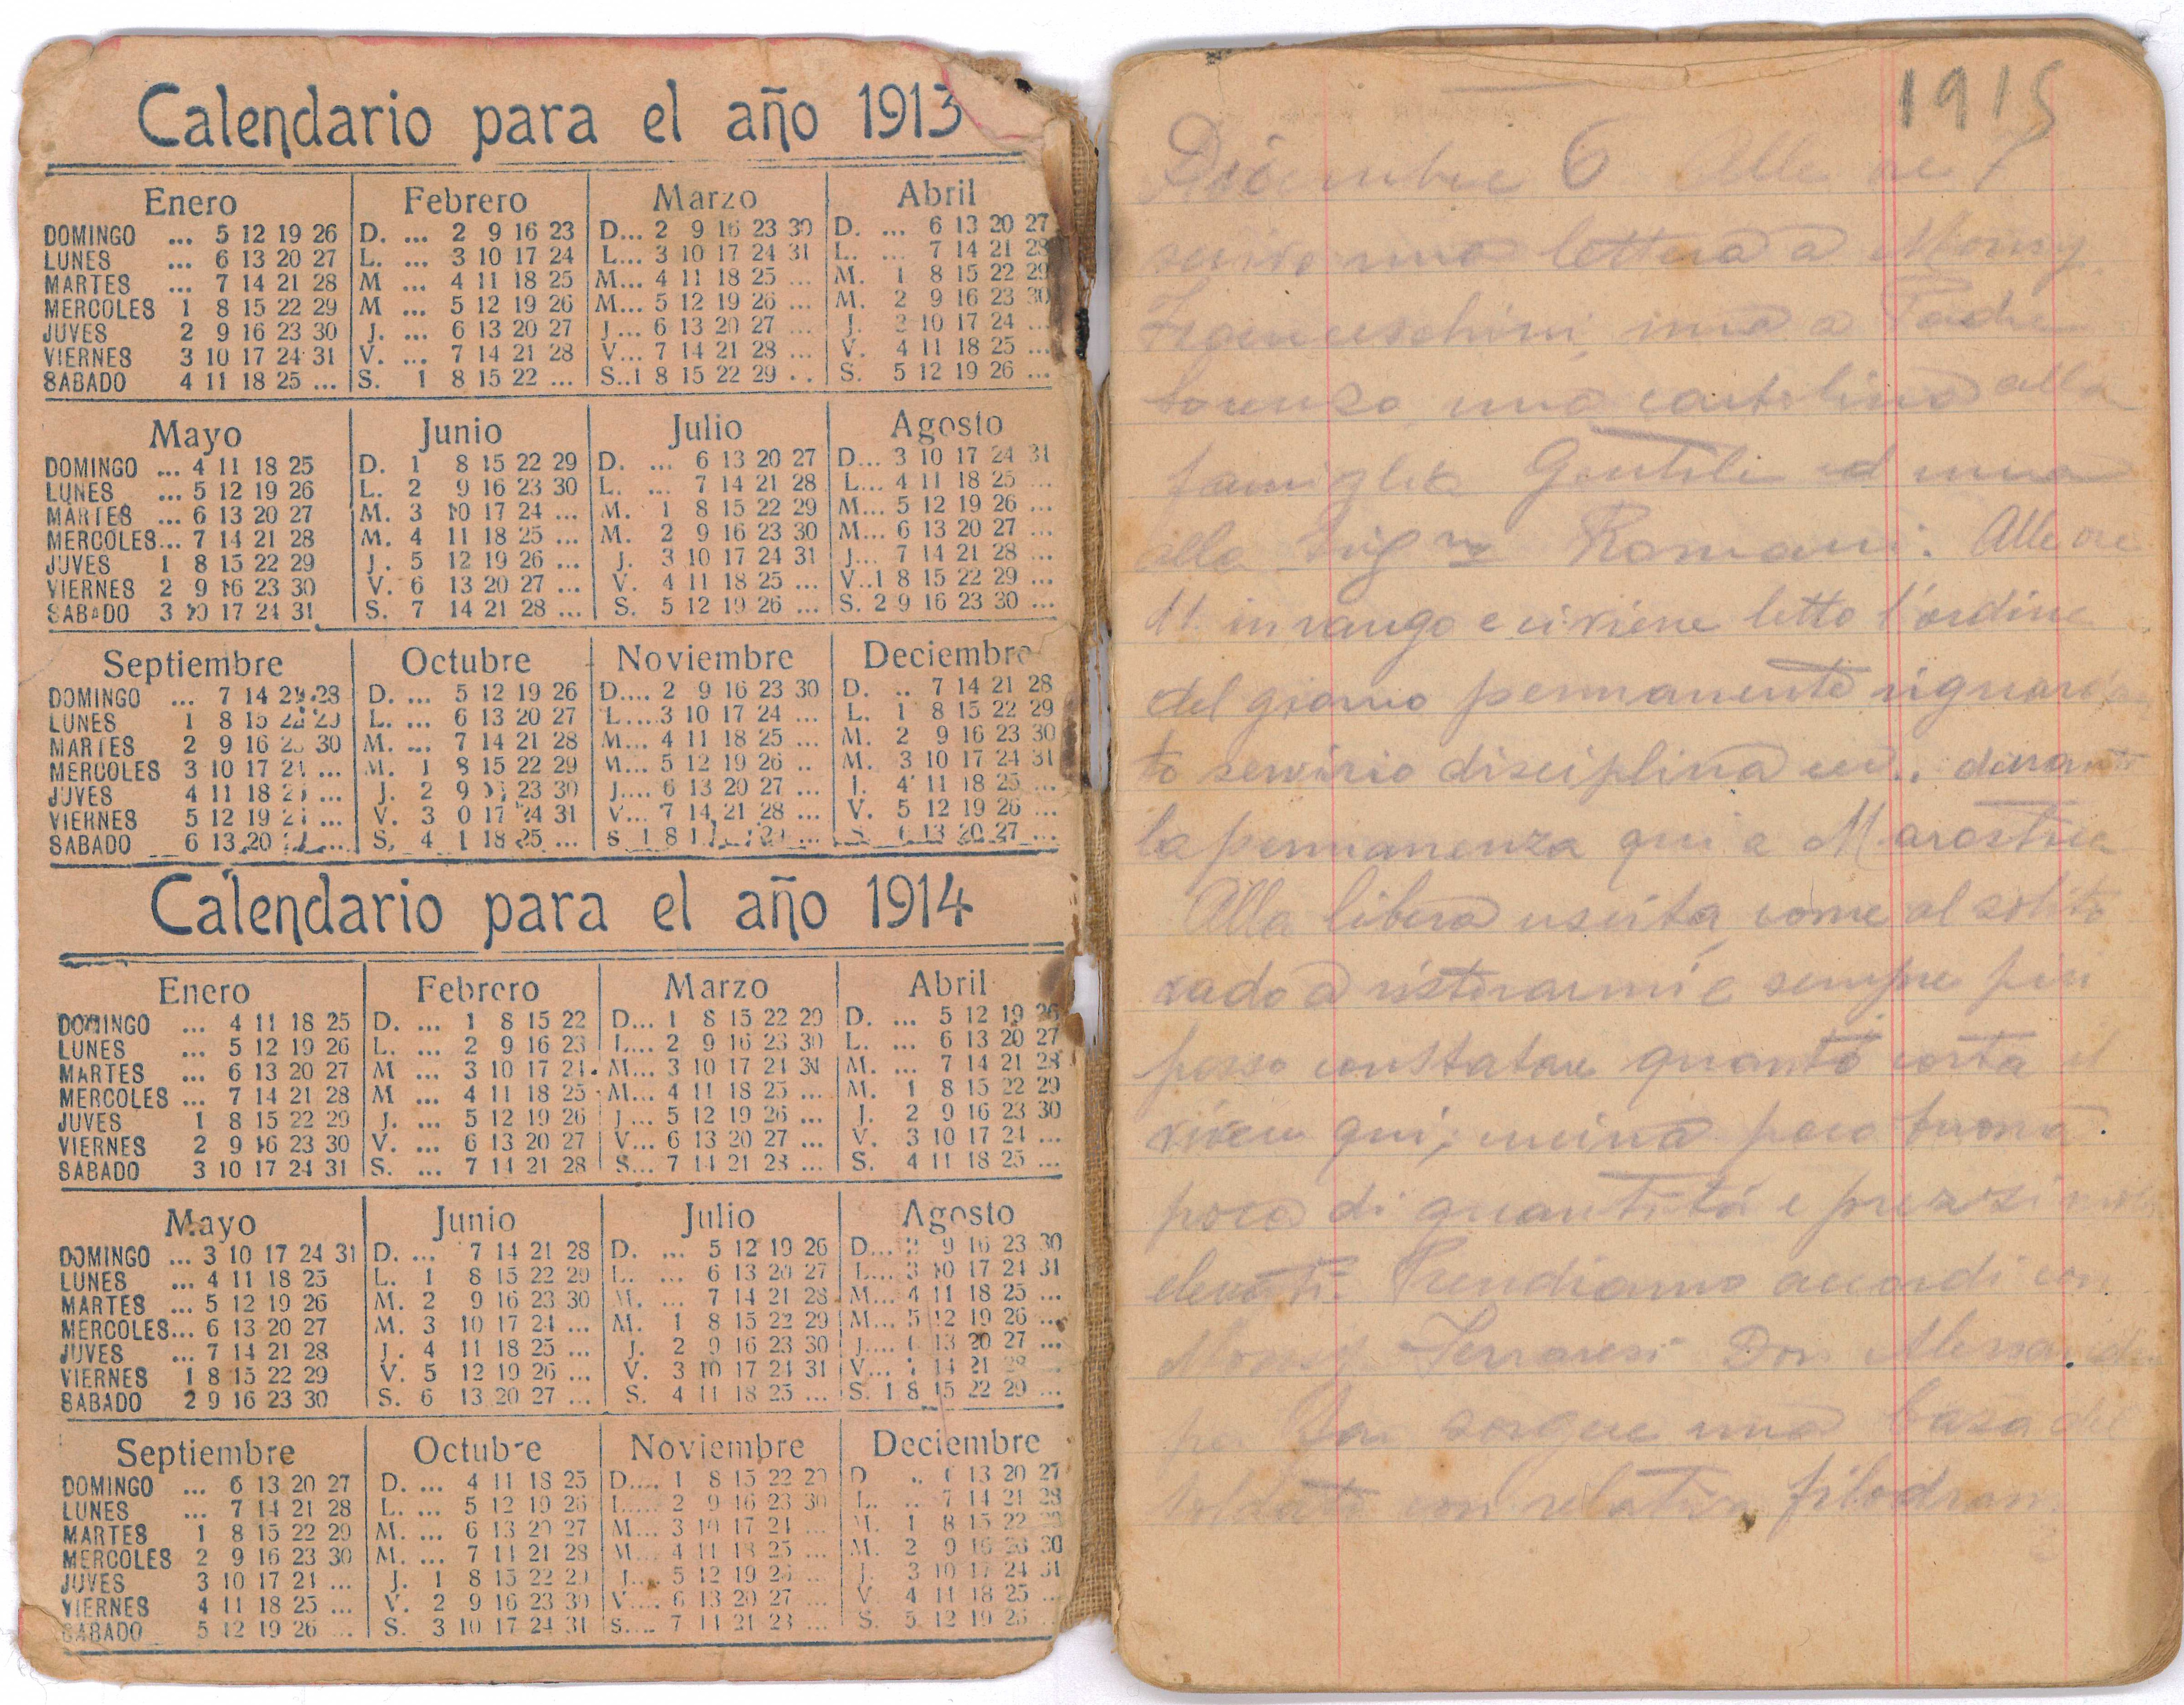 Calendario para el año 1913
Enero Febrero Marzo Abril
DOMINGO ... 5 12 19 26 D. ... 2 9 16 23 D... 2 9 16 23 30 D. ... 6 13 20 27
LUNES ... 6 13 20 27 L. ... 3 10 17 24 L... 3 10 17 24 31 L. ... 7 14 21 28
MARTES ... 7 14 21 28 M ... 4 11 18 25 M... 4 11 18 25 ... M. 1 8 15 22 29
MERCOLES 1 8 15 22 29 M ... 5 12 19 26 M... 5 12 19 26 ... M. 2 9 16 23 30
JUVES 2 9 16 23 30 J. ... 6 13 20 27 J... 6 13 20 27 ... J. 3 10 17 24 ...
VIERNES 3 10 17 24 31 V. ... 7 14 21 28 V... 7 14 21 28 ... V. 4 11 18 25 ...
SABADO 4 11 18 25 ... S. 1 8 15 22 ... S..1 8 15 22 29 .. S. 5 12 19 26 ...
Mayo Junio Julio Agosto
DOMINGO ... 4 11 18 25 D. 1 8 15 22 29 D. ... 6 13 20 27 D... 3 10 17 24 31
LUNES ... 5 12 19 26 L. 2 9 16 23 30 L. ... 7 14 21 28 L... 4 11 18 25 ...
MARTES ... 6 13 20 27 M. 3 10 17 24 ... M. 1 8 15 22 29 M... 5 12 19 26 ...
MERCOLES... 7 14 21 28 M. 4 11 18 25 ... M. 2 9 16 23 30 M... 6 13 20 27 ...
JUVES 1 8 15 22 29 J. 5 12 19 26 ... J. 3 10 17 24 31 J... 7 14 21 28 ...
VIERNES 2 9 16 23 30 V. 6 13 20 27 ... V. 4 11 18 25 ... V..1 8 15 22 29 ...
SABADO 3 10 17 24 31 S. 7 14 21 28 ... S. 5 12 19 26 ... S. 2 9 16 23 30 ...
Septiembre Octubre Noviembre Deciembre
DOMINGO ... 7 14 21 28 D. ... 5 12 19 26 D.... 2 9 16 23 30 D. .. 7 14 21 28
LUNES 1 8 15 22 29 L. ... 6 13 20 27 L....3 10 17 24 ... L. 1 8 15 22 29
MARTES 2 9 16 23 30 M. ... 7 14 21 28 M... 4 11 18 25 ... M. 2 9 16 23 30
MERCOLES 3 10 17 24 ... M. 1 8 15 22 29 M... 5 12 19 26 .. M. 3 10 17 24 31
JUVES 4 11 18 25 ... J. 2 9 16 23 30 J.... 6 13 20 27 ... J. 4 11 18 25 ...
VIERNES 5 12 19 26 ... V. 3 0 17 24 31 V... 7 14 21 28 ... V. 5 12 19 26 ...
SABADO 6 13 20 ... S. 4 1 18 25 ... S 1 8 S 6 13 20 27 ...
Calendario para el año 1914
Enero Febrero Marzo Abril
DOMINGO ... 4 11 18 25 D. ... 1 8 15 22 D... 1 8 15 22 29 D. ... 5 12 19 26
LUNES ... 5 12 19 26 L. ... 2 9 16 23 L... 2 9 16 23 30 L. ... 6 13 20 27
MARTES ... 6 13 20 27 M ... 3 10 17 24 M... 3 10 17 24 31 M. ... 7 14 21 28
MERCOLES ... 7 14 21 28 M ... 4 11 18 25 M... 4 11 18 25 ... M. 1 8 15 22 29
JUVES 1 8 15 22 29 J. ... 5 12 19 26 J... 5 12 19 26 ... J. 2 9 16 23 30
VIERNES 2 9 16 23 30 V. ... 6 13 20 27 V... 6 13 20 27 ... V. 3 10 17 24 ...
SABADO 3 10 17 24 31 S. ... 7 14 21 28 S... 7 14 21 28 ... S. 4 11 18 25 ...
Mayo Junio Julio Agosto
DOMINGO ... 3 10 17 24 31 D. ... 7 14 21 28 D. ... 5 12 19 26 D... 2 9 16 23 30
LUNES ... 4 11 18 25 L. 1 8 15 22 29 L. ... 6 13 20 27 L... 3 10 17 24 31
MARTES ... 5 12 19 26 M. 2 9 16 23 30 M. ... 7 14 21 28 M... 4 11 18 25 ...
MERCOLES... 6 13 20 27 M. 3 10 17 24 ... M. 1 8 15 22 29 M... 5 12 19 26 ...
JUVES ... 7 14 21 28 J. 4 11 18 25 ... J. 2 9 16 23 30 J.... 6 13 20 27 ...
VIERNES 1 8 15 22 29 V. 5 12 19 26 ... V. 3 10 17 24 31 V... 7 14 21 28 ...
SABADO 2 9 16 23 30 S. 6 13 20 27 ... S. 4 11 18 25 ... S. 1 8 15 22 29 ...
Septiembre Octubre Noviembre Deciembre
DOMINGO ... 6 13 20 27 D. ... 4 11 18 25 D.... 1 8 15 22 29 D .. 6 13 20 27
LUNES ... 7 14 21 28 L. ... 5 12 19 26 L.... 2 9 16 23 30 L. .. 7 14 21 28
MARTES 1 8 15 22 29 M. ... 6 13 20 27 M... 3 10 17 24 ... M. 1 8 15 22 29
MERCOLES 2 9 16 23 30 M. ... 7 14 21 28 M... 4 11 18 25 ... M. 2 9 16 23 30
JUVES 3 10 17 24 ... J. 1 8 15 22 29 J... 5 12 19 26 ... J. 3 10 17 24 31
VIERNES 4 11 18 25 ... V. 2 9 16 23 30 V.... 6 13 20 27 ... V 4 11 18 25 ...
SABADO 5 12 19 26 ... S. 3 10 17 24 31 S.... 7 14 21 28 ... S. 5 12 19 26 ..
1915
Dicembre 6 Alle ore 7
scrivo una lettera a Monsg
Franceschini, una a Padre
Lorenzo una cartolina alla
famiglia Gentili ed una
alla Sig.na Romani. Alle ore
11 in rango e ci viene letto l'ordine
del giorno permanente riguardan
te servizio disciplina ecc.. durante
la permanenza qui a Marostica
Alla libera uscita, come al solito
vado a ristorarmi e sempre più
posso constatare quanto costa il
vivere qui; cucina poco buona.
poca di quantità e prezzi molto
elevati. Prendiamo accordi con
Monsg. Ferraresi Don Alessandro
per far sorgere una Casa del
soldato con relativa filodram